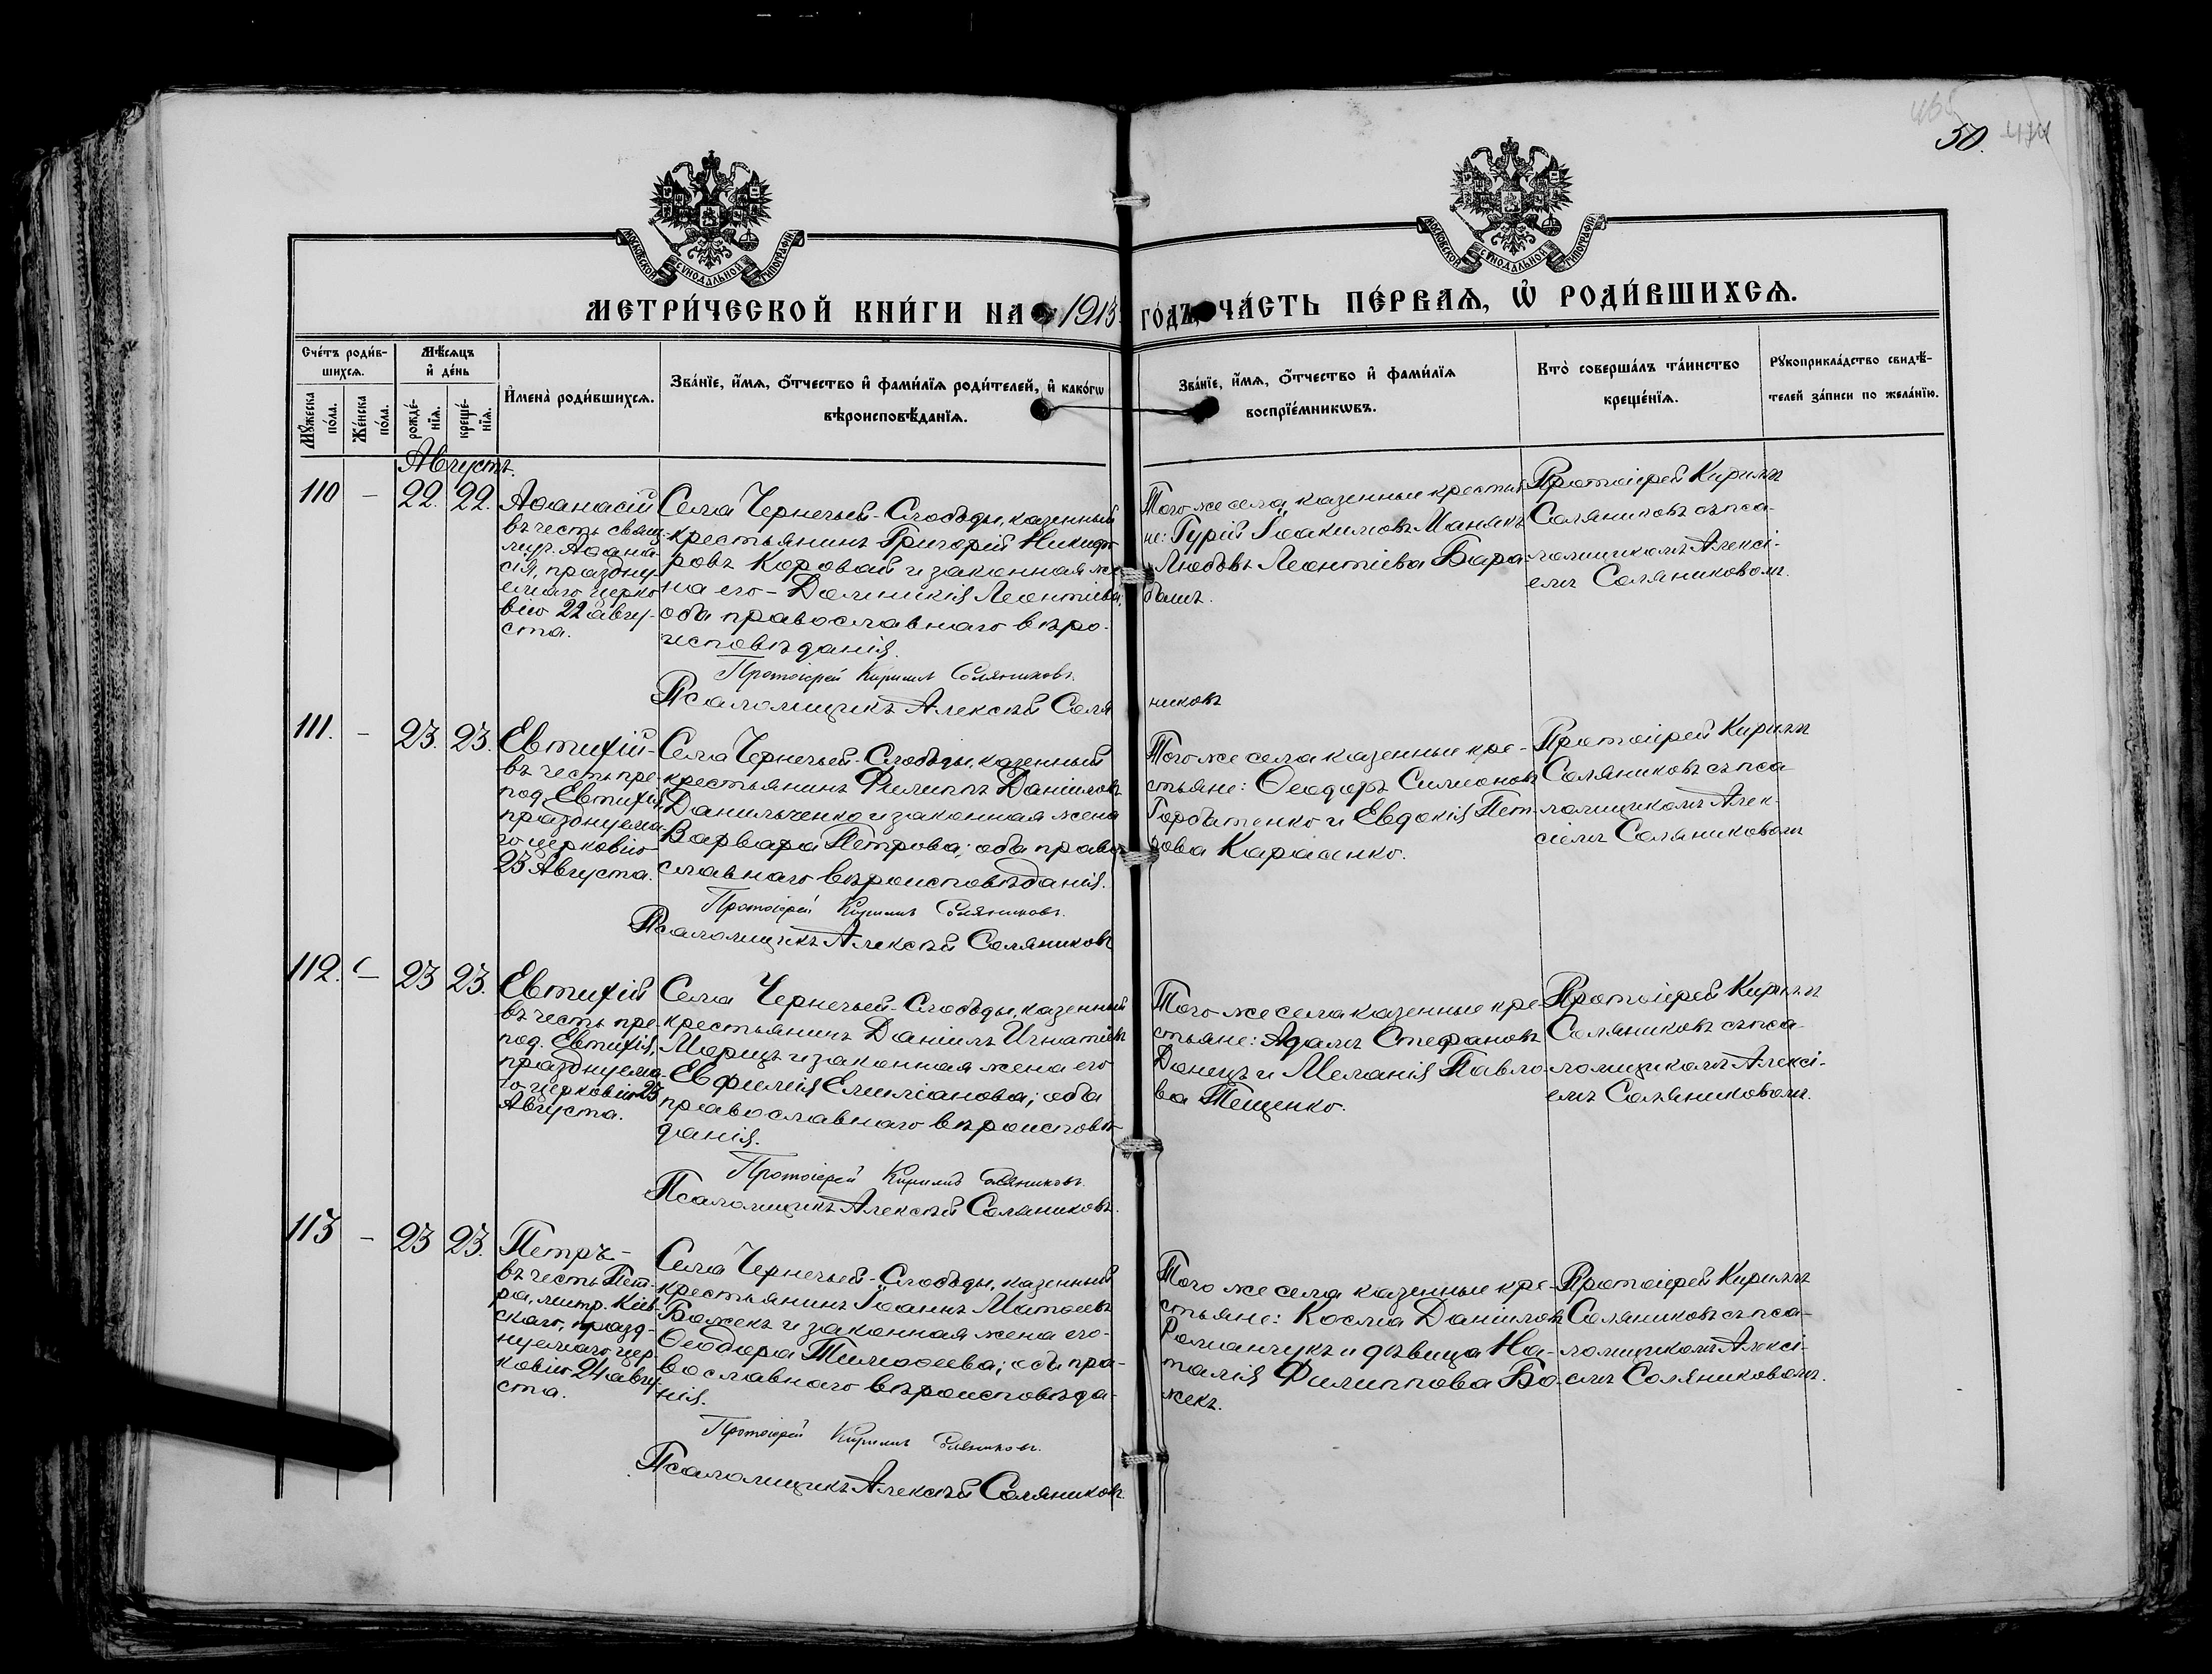 465
50. 474
МОСКОВСКОЙ СѴНОДАЛЬНОЙ ТИПОГРАФІИ
МОСКОВСКОЙ СѴНОДАЛЬНОЙ ТИПОГРАФІИ
МЕТРИ́ЧЕСКОЙ КНИ́ГИ НА 1913 ГО́ДЪ, ЧА́СТЬ ПЕ́РВАѦ, Ѡ҆ РОДИ́ВШИХСѦ.
Сче́тъ роди́в-
шихсѧ.
Мѣ́сѧцъ
и҆ де́нь
Мꙋ́жеска
по́ла.
Же́нска
по́ла.
рожде́-
нїѧ.
креще́-
нїѧ.
И҆мена̀ роди́вшихсѧ.
Зва́нїе, и҆́мѧ, ѻ҆́тчество и҆ фами́лїѧ роди́телей, и҆ како́гѡ
вѣроисповѣ́данїѧ.
Зва́нїе, и҆́мѧ, ѻ҆́тчество и҆ фами́лїѧ
воспрїе́мникѡвъ.
Кто̀ соверша́лъ та́инство
креще́нїѧ.
Рꙋкоприкла́дство свидѣ́-
телей за́писи по жела́нїю.
Августъ.
110 – 22. 22.
Аѳанасій
въ честь свящ.
муч. Аѳана-
сія, праздну-
емаго церко-
вію 22 авгу-
ста.
Села Чернечьей-Слободы, казенный
крестьянинъ Григорій Никифо-
ровъ Коровай и законная же-
на его – Домникія Леонтіева;
оба православнаго вѣро-
исповѣданія.
Протоіерей Кириллъ Соляниковъ.
Псаломщикъ Алексѣй Соля
никовъ
Того же села, казенные крестья-
не: Гурій Іоакимовъ Манякъ
Любовь Леонтіева Бара-
башъ.
Протоіерей Кириллъ
Соляниковъ съ пса-
ломщикомъ Алексі-
емъ Соляниковомъ.
111. – 23. 23.
Евтихій-
въ честь пре-
под. Евтихія,
празднуема-
го церковію
23 Августа.
Села Чернечьей-Слободы, казенный
крестьянинъ Филиппъ Даніиловъ
Данильченко и законная жена
Варвара Петрова; оба право-
славнаго вѣроисповѣданія.
Протоіерей Кириллъ Соляниковъ.
Псаломщикъ Алексѣй Соляниковъ
Того же села казенные кре-
стьяне: Ѳеодоръ Симеоновъ
Горбатенко и Евдокія Пет-
рова Карасенко.
Протоіерей Кириллъ
Соляниковъ съ пса-
ломщикомъ Алек-
сіемъ Соляниковомъ
112. – 23 23.
Евтихій
въ честь пре-
под. Евтихія,
празднуема-
го церковію 23
Августа.
Села Чернечьей-Слободы, казенный
крестьянинъ Даніилъ Игнатіевъ
Морицъ и законная жена его
Евфимія Емиліанова; оба
православнаго вѣроисповѣ-
данія.
Протоіерей Кириллъ Соляниковъ.
Псаломщикъ Алексѣй Соляниковъ.
Того же села казенные кре-
стьяне: Адамъ Стефановъ
Донецъ и Меланія Павло-
ва Тещенко.
Протоіерей Кириллъ
Соляниковъ съ пса-
ломщикомъ Алексі-
емъ Соляниковомъ.
113 – 23 23.
Петръ-
въ честь Пет-
ра, митр. Кіев-
скаго, празд-
нуемаго цер-
ковію 24 авгу-
ста.
Села Чернечьей-Слободы, казенный
крестьянинъ Іоаннъ Матѳеевъ
Божекъ и законная жена его-
Ѳеодора Тимоѳеева; оба пра-
вославнаго вѣроисповѣда-
нія.
Протоіерей Кириллъ Соляниковъ.
Псаломщикъ Алексѣй Соляниковъ.
Того же села казенные кре-
стьяне: Косма Даніиловъ
Романчукъ и дѣвица На-
талія Филиппова Бо-
жекъ.
Протоіерей Кириллъ
Соляниковъ съ пса-
ломщикомъ Алексі-
емъ Соляниковомъ.